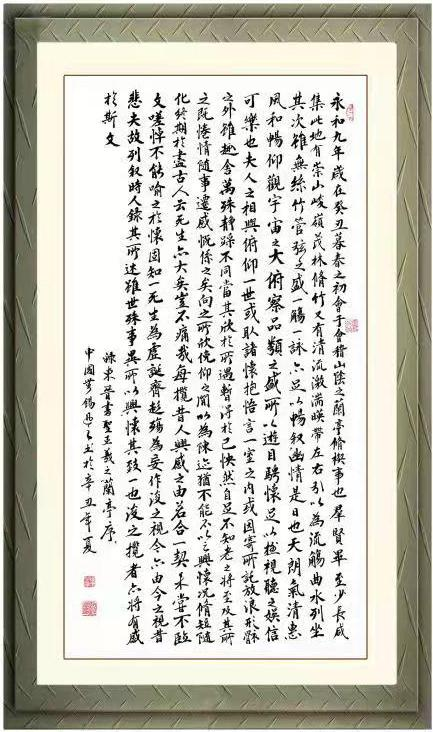 永和九年歲在癸丑暮春之初會于會稽山陰之蘭亭脩稧事也羣賢畢至少長咸
集此地有崇山峻嶺茂林脩竹又有清流激湍暎帶左右引以為流觴曲水列坐
其次雖無絲竹管弦之盛一觴一詠亦足以暢叙幽情是日也天朗氣清惠
風和暢仰觀宇宙之大俯察品類之盛所以遊目騁懷足以極視聽之娛信
可樂也夫人之相與俯仰一世或取諸懷抱悟言一室之內或因寄所託放浪形骸
之外雖趣舍萬殊靜躁不同當其欣於所遇暫得於己快然自足不知老之將至及其所
之既惓情隨事遷感慨係之矣向之所欣俛仰之間以為陳迹猶不能不以之興懷況脩短隨
化終期於盡古人云死生亦大矣豈不痛哉每攬昔人興感之由若合一契未嘗不臨
文嗟悼不能喻之於懷固知一死生為虛誕齊彭殤為妄作後之視今亦由今之視昔
悲夫故列叙時人錄其所述雖世殊事異所以興懷其致一也後之攬者亦將有感
於斯文
東晉書聖王羲之蘭亭序
中國 錫 書於辛丑年夏